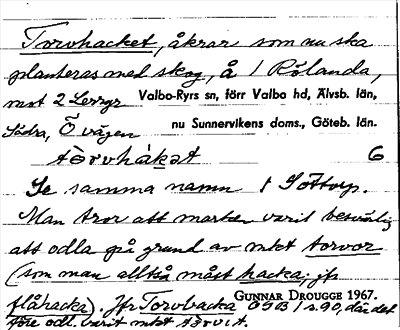 Torvhacket, åkrar som nu ska
planteras med skog, å 1 Rölanda,
mot 2 Lerryr Valbo-Ryrs sn, förr Valbo hd, Älvsb. län,
Södra, Ö vägen nu Sunnervikens doms., Göteb. län.
tòrvhákət 6
Se samma namn 1 Sottorp.
Man tror att marken varit besvärlig
att odla på grund av mkt torvor
(som man alltså måst hacka, jfr
flåhacka). Jfr Torvbacka OGB 1 s. 90, där det
GUNNAR DROUGGE 1967.
före odl. varit mkt